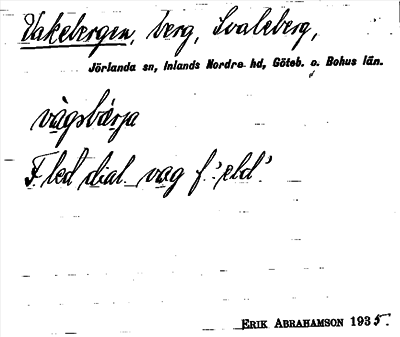 Vakebergen, berg, Svaleberg,
Jörlanda sn, Inlands Nordre hd, Göteb. o. Bohus län.
vàgsbærja
F. led dial. vag f. 'eld'.
ERIK ABRAHAMSON 1935.